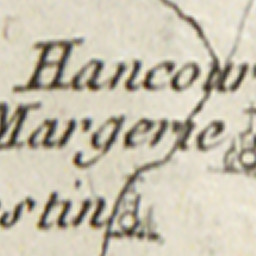 Hancour
Margerie
stin